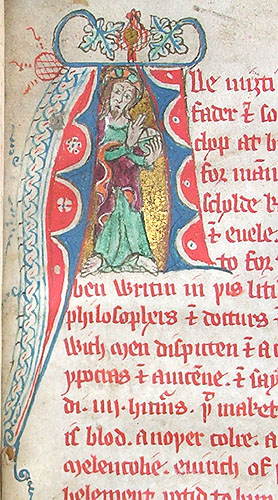 Alle miȝti
fader ⁊ so
at b
for man
schylde
⁊ euele
to for
ben writin in þis liti
philosophers ⁊ docturs
with men disputen ⁊ a
ypocras ⁊ auicene. ⁊ say
di. iiij. maket
is blod. anoþer colre. a
melencolie. euerich of
helement.